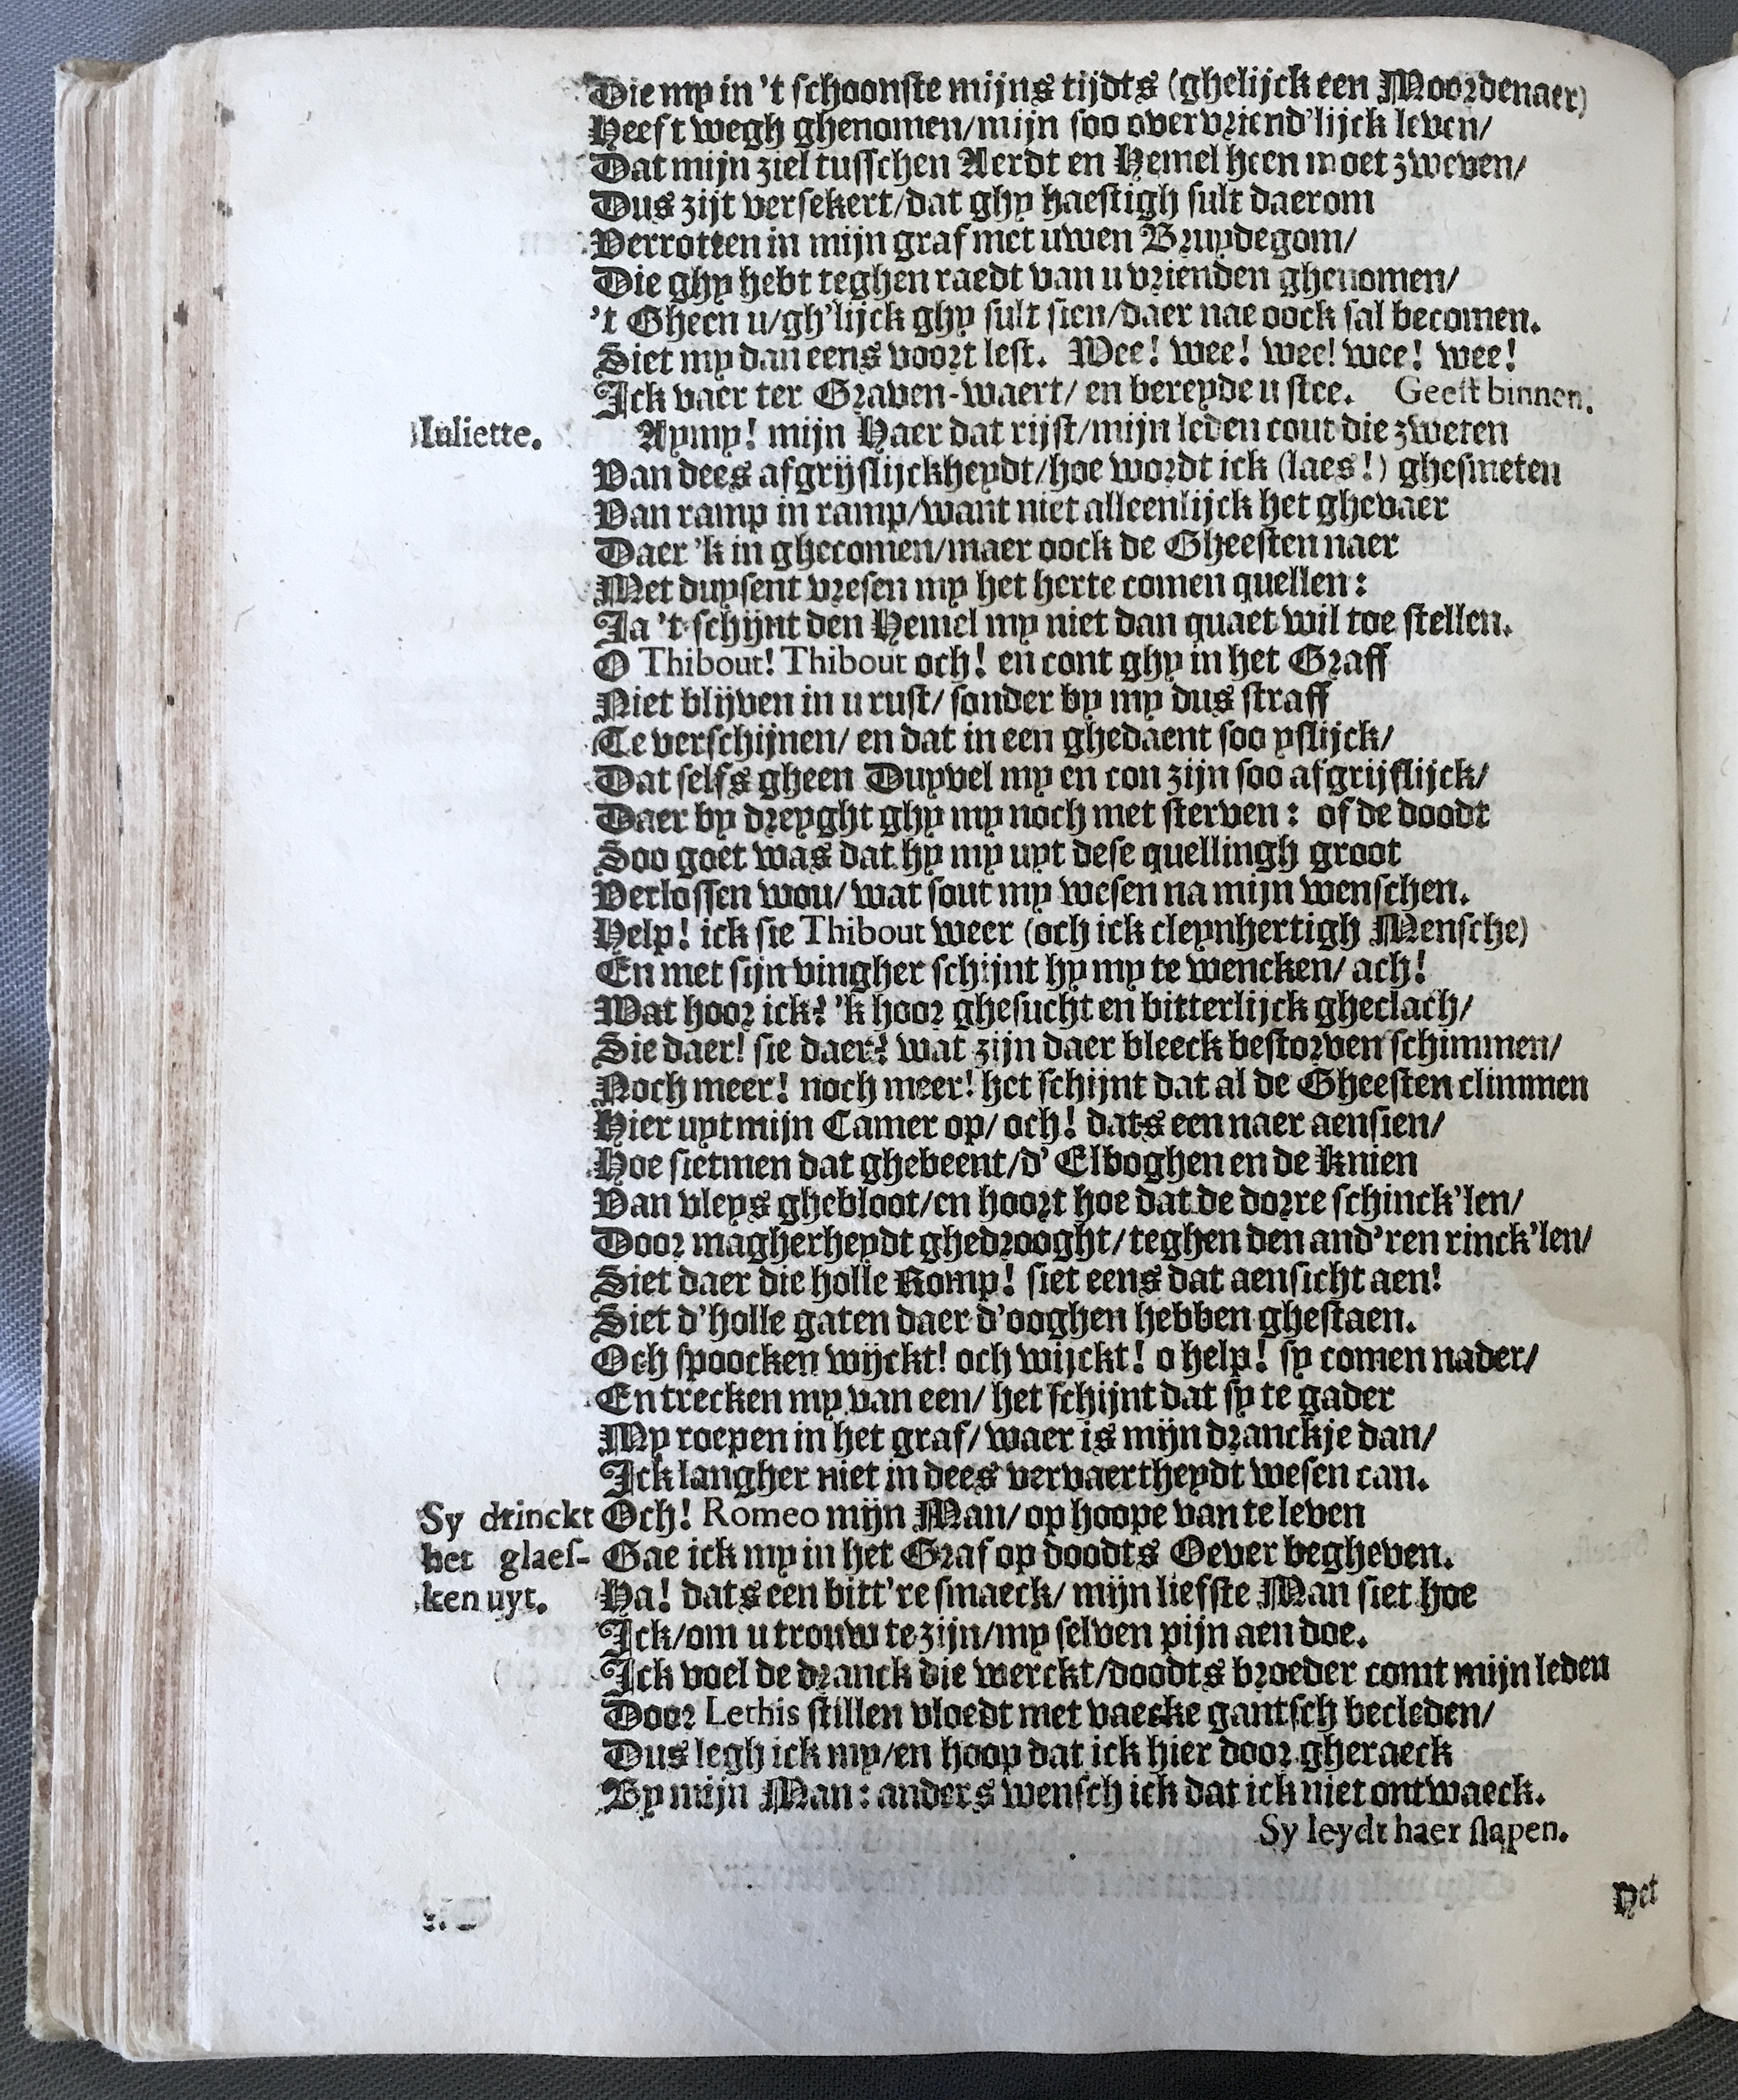 Die my in 't schoonste mijns tijdts (ghelijck een Moordenaer)
Heeft wegh ghenomen/mijn soo overvriend'lijck leven/
Dat mijn ziel tusschen Aerdt en Hemel heen moet zweven/
Dus zijt versekert/dat ghy haestigh sult daerom
Verrotten in mijn graf met uwen Bruydegom/
Die ghy hebt teghen raedt van u vrienden ghenomen/
't Gheen u/gh'lijck ghy sult sien/daer nae oock sal becomen.
Siet my dan eens voort lest. Wee! wee! wee! wee! wee!
Ick vaer ter Graven-waert/ en bereyde u stee. Geest binnen.
Iuliette. Aymy! mijn Haer dat rijst/mijn leden cout die zweten
Van dees afgrijslijckheydt/hoe wordt ick (laes!) ghesmeten
Van ramp in ramp/want niet alleenlijck het ghevaer
Daer 'k in ghecomen/maer oock de Gheesten naer
Met duysent vresen my het herte comen quellen:
Ja 't schijnt den Hemel my niet dan quaet wil toe stellen.
O Thibout! Thibout och! en cont ghy in het Graff
Niet blijven in u rust/ sonder by my dus straff
Te verschijnen/ en dat in een ghedaent soo yslijck/
Dat selfs gheen Duyvel my en con zijn soo afgrijslijck/
Daer by dreyght ghy my noch met sterven: of de doodt
Soo goet was dat hy my uyt dese quellingh groot
Verlossen wou/ wat sout my wesen na mijn wenschen.
Help! ick sie Thibout weer (och ick cleynhertigh Mensche)
En met sijn vingher schijnt hy my te wencken/ ach!
Wat hoor ick? 'k hoor ghesucht en bitterlijck gheclach/
Sie daer! sie daer? wat zijn daer bleeck bestorven schimmen/
Noch meer! noch meer! het schijnt dat al de Gheesten climmen
Hier uyt mijn Camer op/ och! dats een naer aensien/
Hoe sietmen dat ghebeent/d' Elboghen en de Knien
Van vleys ghebloot/en hoort hoe dat de dorre schinck'len/
Door magherheydt ghedrooght/teghen den and'ren rinck'len/
Siet daer die holle Romp! siet eens dat aensicht aen!
Siet d'holle gaten daer d'ooghen hebben ghestaen.
Och spoocken wijckt! och wijckt! o help! sy comen nader/
En trecken my van een/ het schijnt dat sy te gader
My roepen in het graf/ waer is mijn dranckje dan/
Ick langher niet in dees vervaertheydt wesen can.
Sy drinckt Och! Romeo mijn Man/ op hoope van te leven
het glaes- Gae ick my in het Graf op doodts Oever begheven.
ken uyt. Ha! dats een bitt're smaeck/ mijn liefste Man siet hoe
Ick/om u trouw te zijn/my selven pijn aen doe.
Ick voel de dranck die werckt/doodts broeder comt mijn leden
Door Lethis stillen vloedt met vaecke gantsch becleden/
Dus legh ick my/en hoop dat ick hier door gheraeck
By mijn Man: anders wensch ick dat ick niet ontwaeck.
Sy leydt haer slapen.
Het